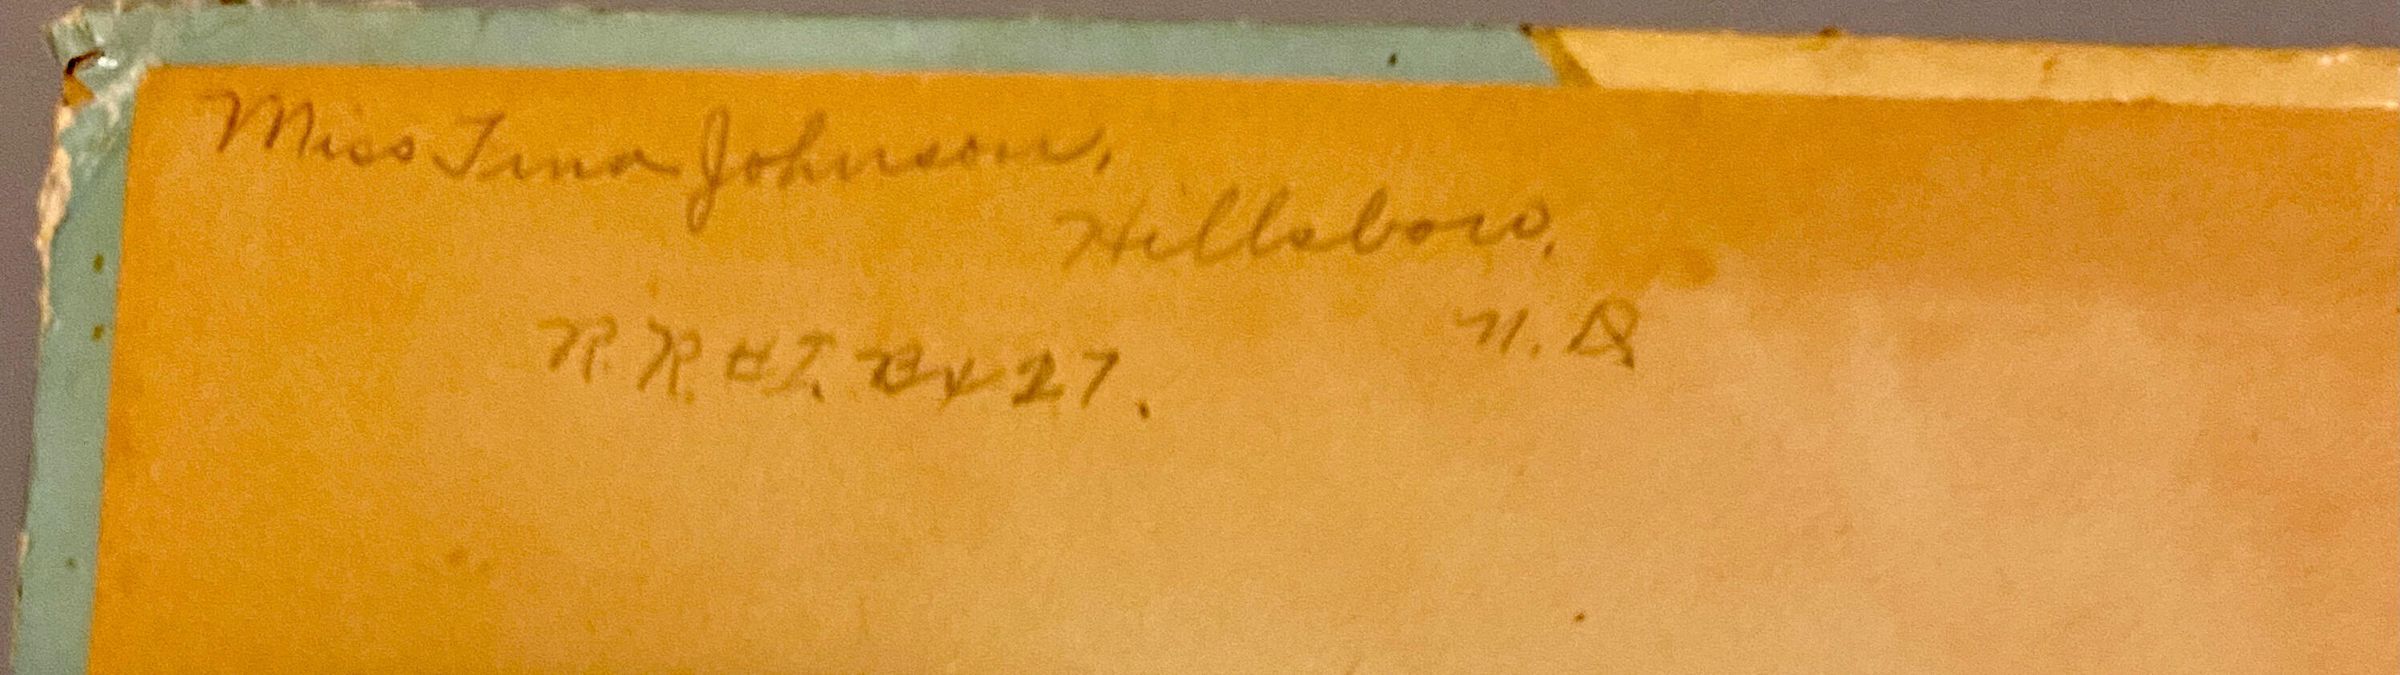 Miss Tina Johnson,
Hillsboro,
N. D
R. R. #1. Bx 27.